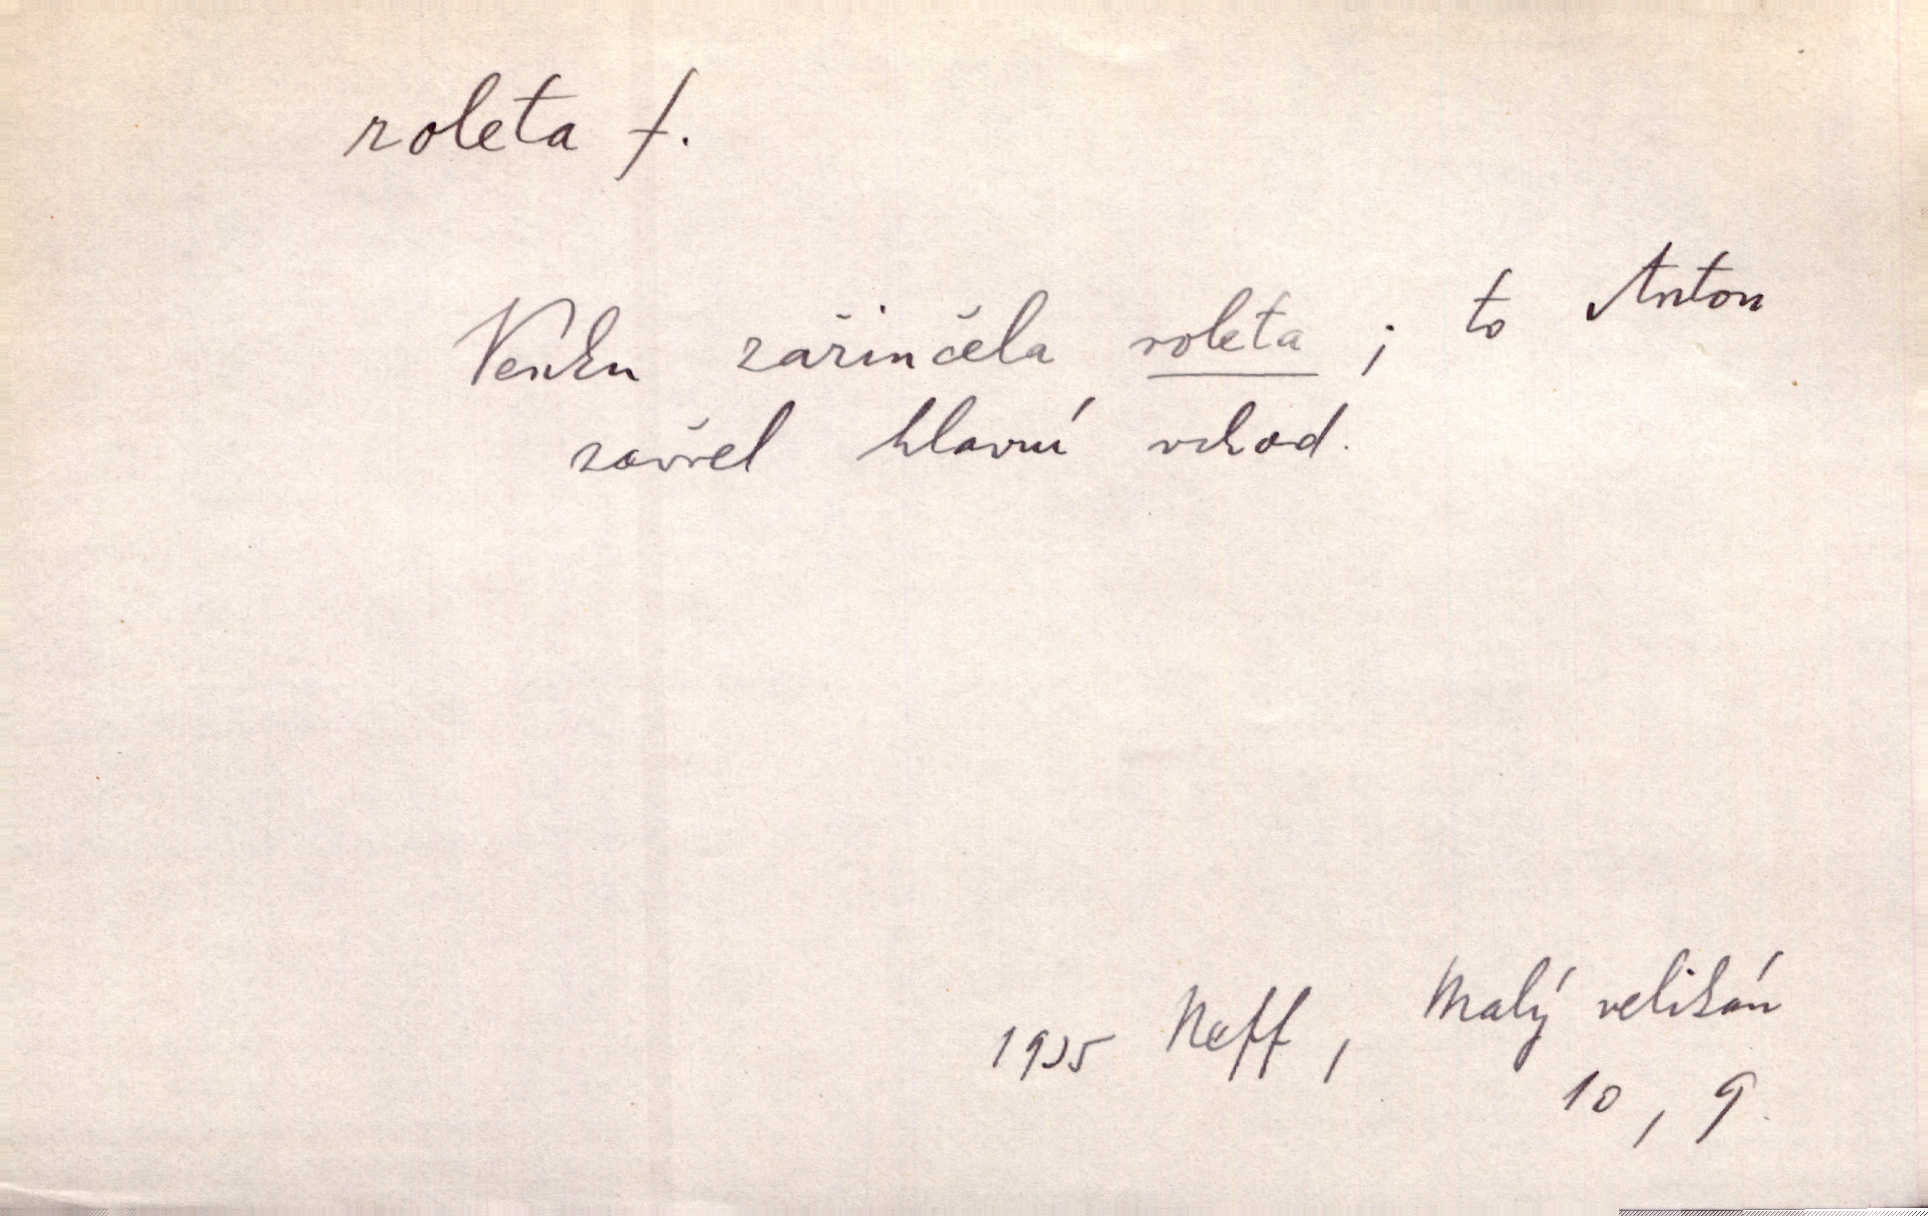 roleta f.
Venku zařinčela roleta ; to Anton
zavřel hlavní vchod.
1935 Neff , Malý velikán
10 , 9.